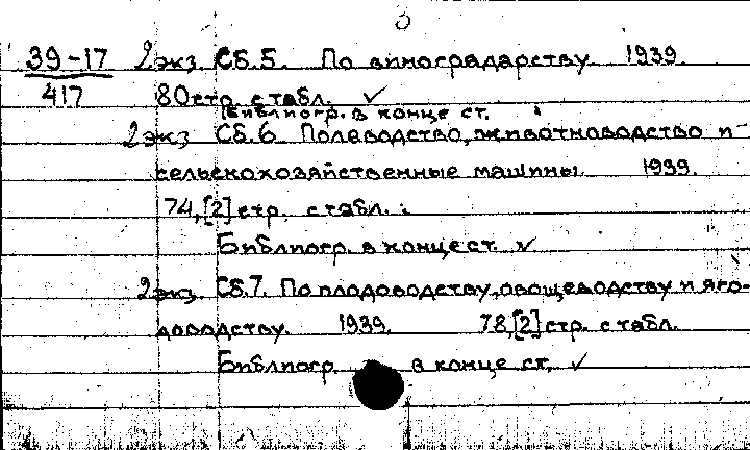 3
39-17 2 экз. Сб.5. По виноградарству. 1939.
417 80 стр. с табл. ✓
Библиогр. в конце ст.
2 экз Сб.6. Полеводство, животноводство и
сельскохозяйственные машины. 1939.
74,[2] стр. с табл.
Библиогр. в конце ст. ✓
2 экз. Сб.7. По плодоводству, овощеводству и яго-
доводству. 1939. 78,[2] стр. с табл.
Библиогр. в конце ст. ✓